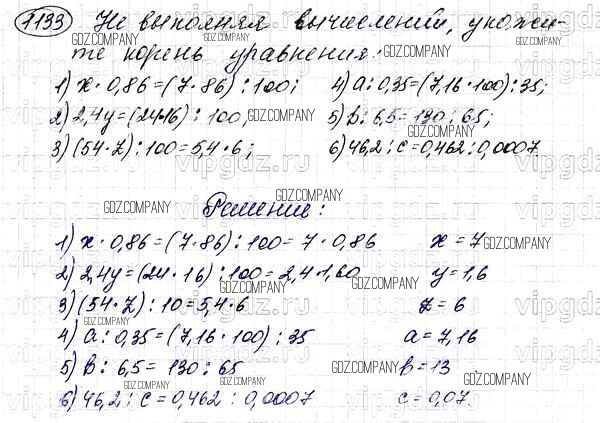 1193 Не выполняя вычислений, укажи-
те корень уравнения:
1) x · 0,86 = (7 · 86) : 100; 4) a : 0,35 = (7,16 · 100) : 35;
2) 2,4y = (24·16) : 100; 5) b : 6,5 = 130 : 65;
3) (54 · z) : 100 = 5,4 · 6; 6) 46,2 : c = 0,462 : 0,0007
Решение:
1) x · 0,86 = (7 · 86) : 100 = 7 · 0,86 x = 7
2) 2,4y = (24 · 16) : 100 = 2,4 · 1,60 y = 1,6
3) (54 · z) : 10 = 5,4 · 6 z = 6
4) a : 0,35 = (7,16 · 100) : 35 a = 7,16
5) b : 6,5 = 130 : 65 b = 13
6) 46,2 : c = 0,462 : 0,0007 c = 0,07